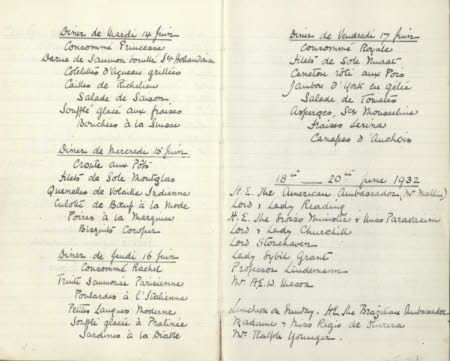 Diner de Mardi 14 Juin
Consommé Princesse
Darne de Saumon bouillé Sce Hollandaise
Côtelettes d'Agneau grillées
Cailles de Richelieu
Salade de Saison
Soufflé glacé aux fraises
Bouchées à la Suisse
Diner de Mercredi 15 Juin
Croute aux Pots
Filets de Sole Montglas
Quenelles de Volaille Indienne
Culotte de Bœuf à la Mode
Poires à la Marquise
Biscuits
Diner de Jeudi 16 Juin
Consommé Rachel
Truite Saumonée Parisienne
Poulardes à l'Italienne
Petites Langues Moderne
Soufflé glacée à Pralinée
Sardines à la Diable
Diner de Vendredi 17 Juin
Consommé Royale
Filets de Sole Murat
Caneton rôti aux Pois
Jambon d'York en gelée
Salade de Tomates
Asperges, Sce Mousseline
Fraises Lerina
Canapes d'Anchois
18th _ 20th June 1932
H.E. The American Ambassador (Mr Mellon)
Lord & Lady Reading
H.E. The Swiss Minister & Miss Paravicini
Lord & Lady Churchill
Lord Stonehaven
Lady Sybil Grant
Professor Lindemann
Mr A.E.W. Mason
Luncheon on Sunday. H.E. The Brazilian Ambassador
Madame & Miss Regis de Oliveira
Mr Ralph Younger.